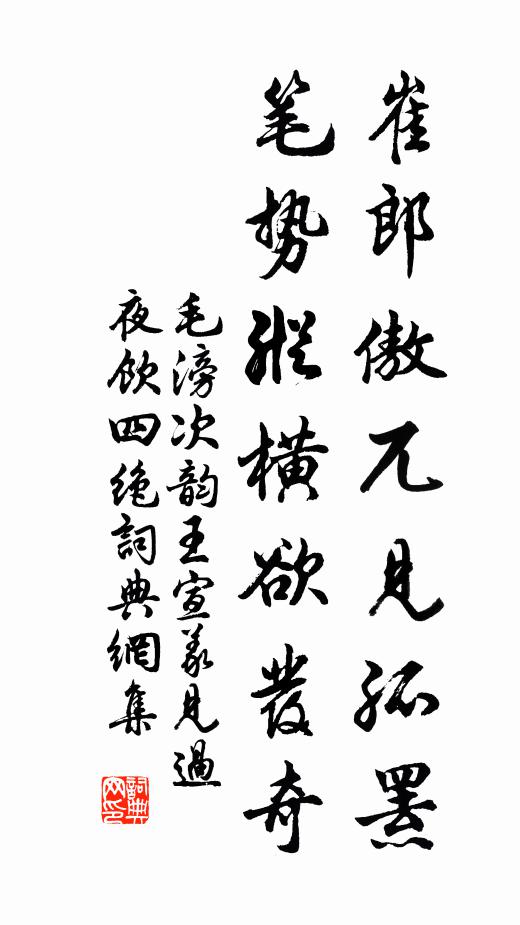 崔郎傲兀見孤罴
笔势縱橫欲發奇
毛滂次韵王宣義見過
夜飲四絕詞典網集
詞典网印